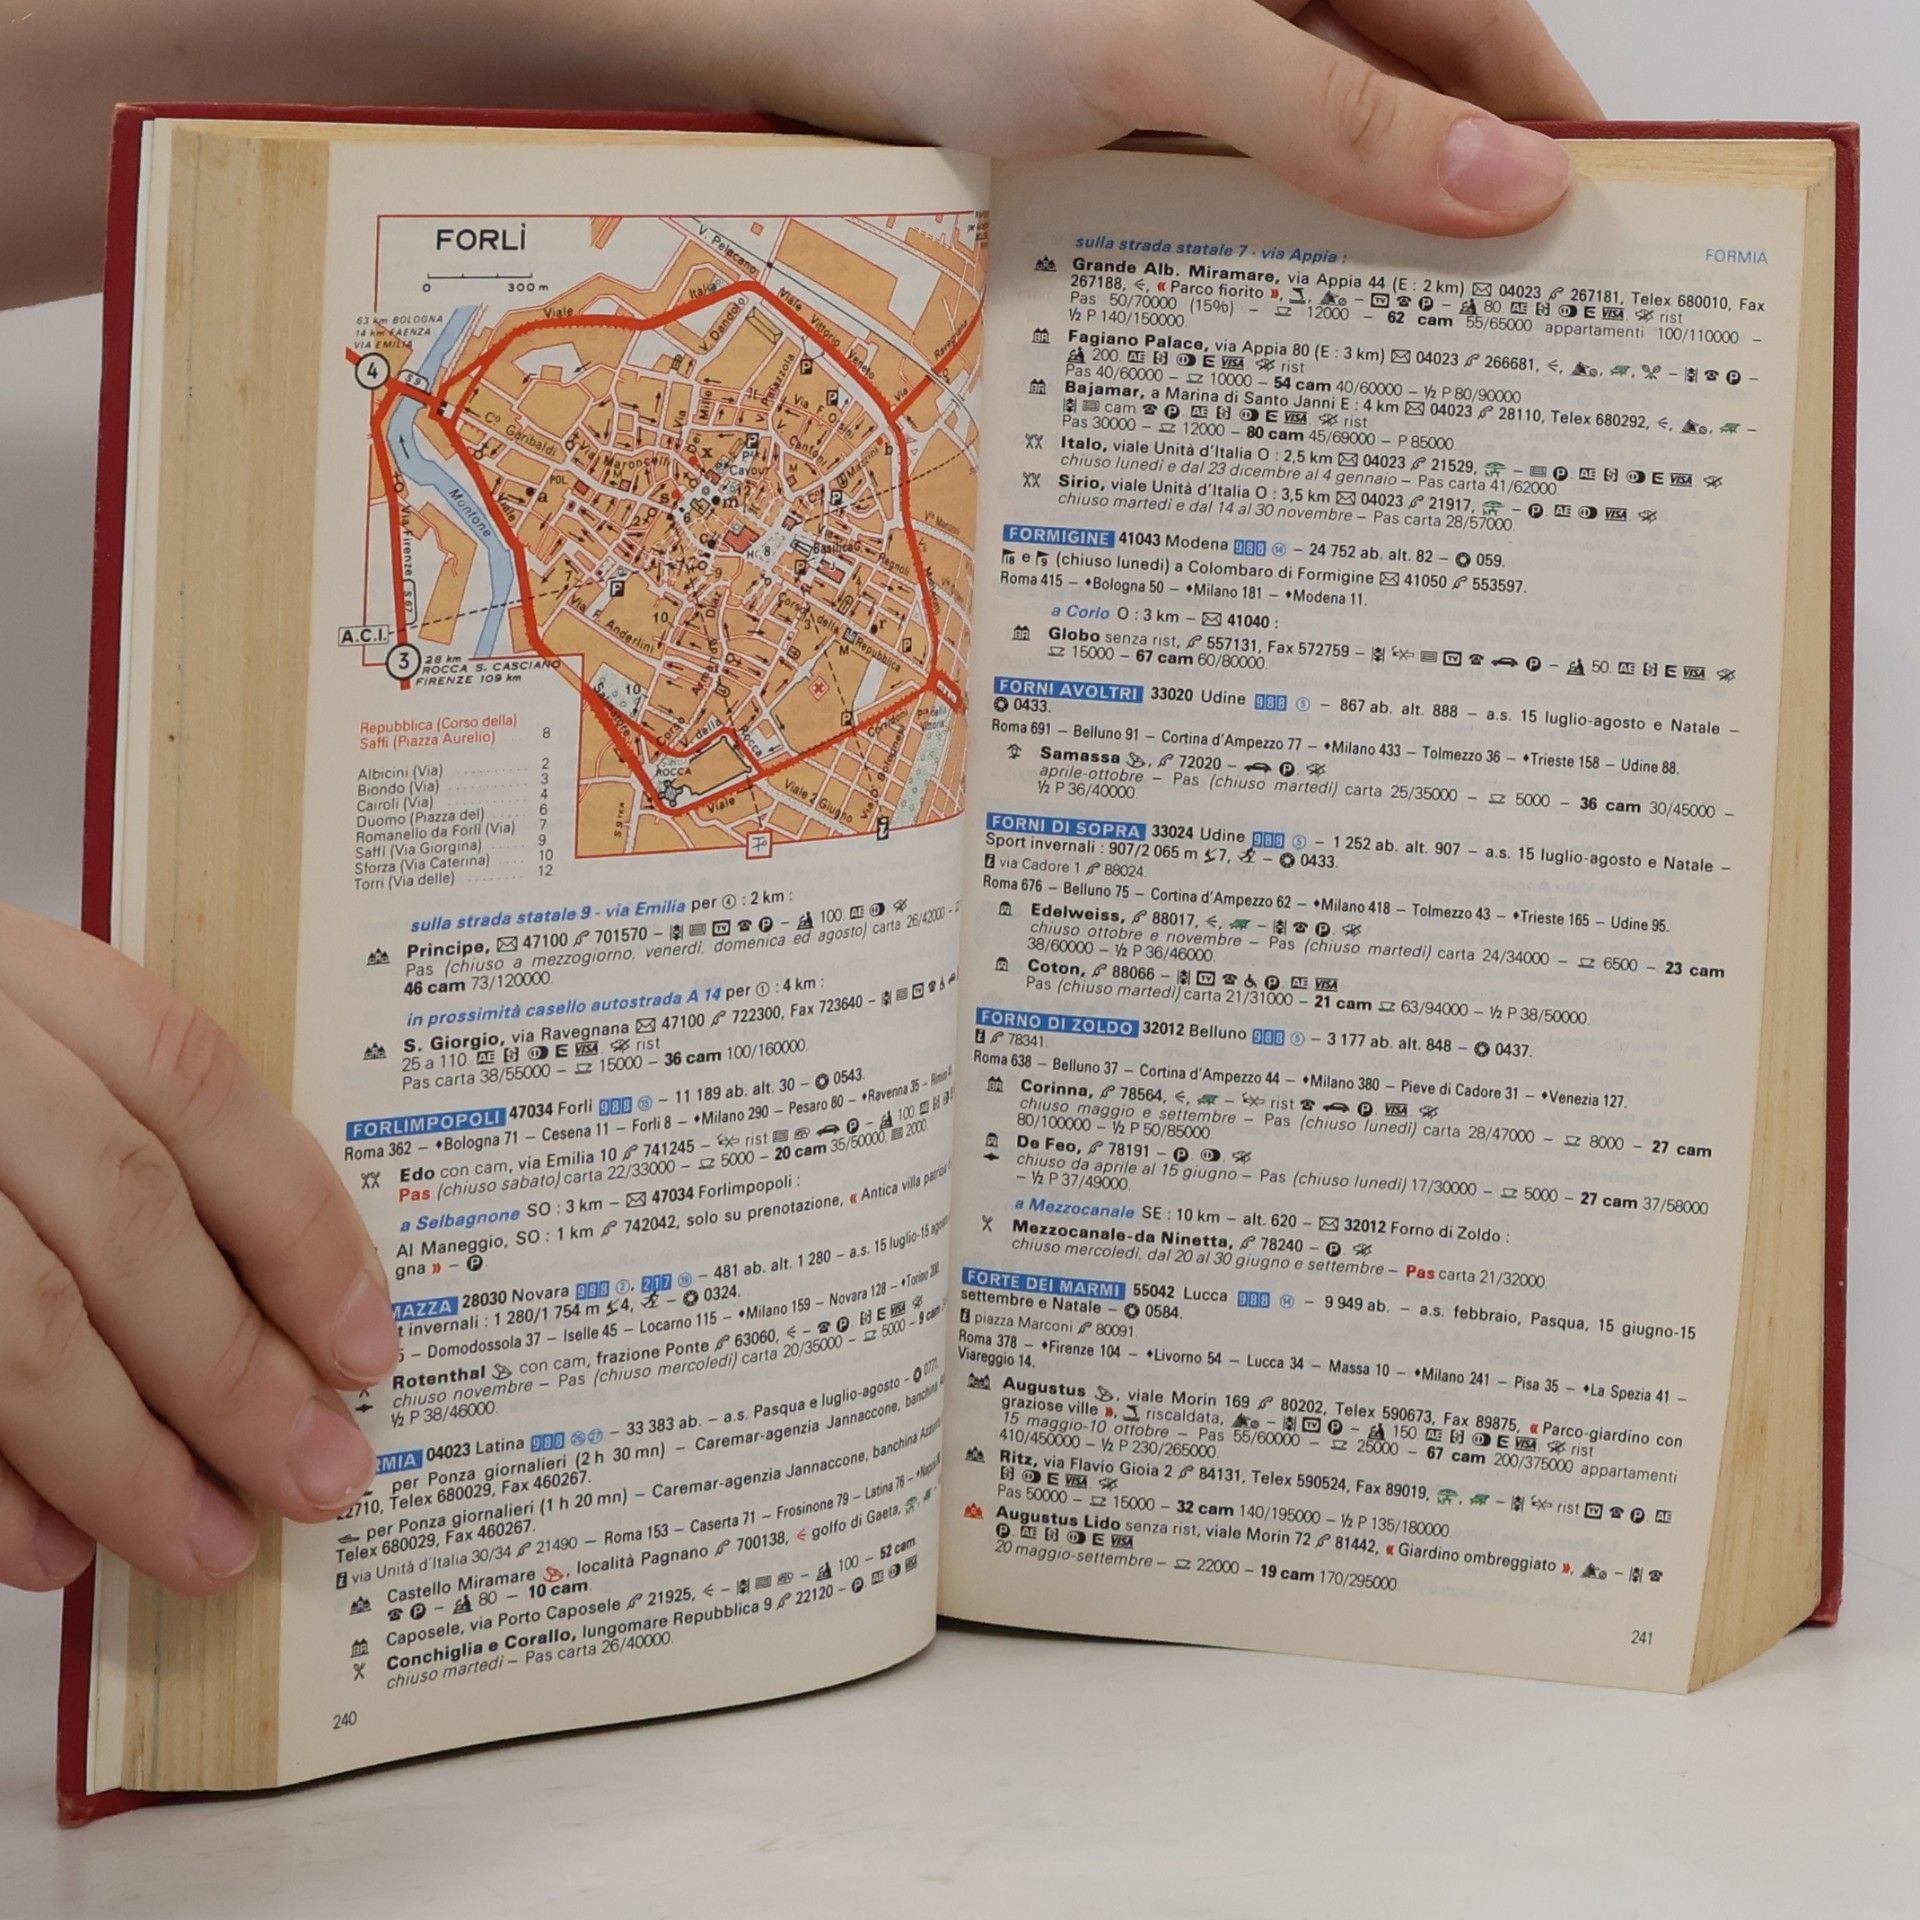 FORLÌ
0 300 m
63 km BOLOGNA
14 km FAENZA
VIA EMILIA
4
S 9
V. Pelacano
Viale
Italia
V. Dandolo
Viale Vittorio Veneto
Ravegnana
Via
V. Palazzola
Via F. Orsini
V. Cantoni
Mille
Via
dei
Cº Garibaldi
Via Maroncelli
Cavour
Mazzini
POL.
Montone
Viale
Via Firenze
S 67
Basilica
Regnoli
Corso della Repubblica
Diaz
Via F. Anderlini
A.C.I.
3
28 km
ROCCA S. CASCIANO
FIRENZE 109 km
Salinatore
Corso
V. della Rocca
ROCCA
Viale
Viale 2 Giugno
Corridoni
Repubblica (Corso della)
Saffi (Piazza Aurelio) 8
Albicini (Via) 2
Biondo (Via) 3
Cairoli (Via) 4
Duomo (Piazza del) 6
Romanello da Forlì (Via) 7
Saffi (Via Giorgina) 9
Sforza (Via Caterina) 10
Torri (Via delle) 12
sulla strada statale 9 - via Emilia per ④ : 2 km :
Principe, ✉ 47100 701570 – TV P – 100. AE
Pas (chiuso a mezzogiorno, venerdì, domenica ed agosto) carta 26/42000 –
46 cam 73/120000.
in prossimità casello autostrada A 14 per ① : 4 km :
S. Giorgio, via Ravegnana ✉ 47100 722300, Fax 723640 –
25 a 110. AE E VISA rist
Pas carta 38/55000 – 15000 – 36 cam 100/160000.
FORLIMPOPOLI 47034 Forlì 988 ⑮ – 11 189 ab. alt. 30 – 0543.
Roma 362 – ♦Bologna 71 – Cesena 11 – Forlì 8 – ♦Milano 290 – Pesaro 80 – ♦Ravenna 35 – Rimini
Edo con cam, via Emilia 10 741245 – rist P – 100
Pas (chiuso sabato) carta 22/33000 – 5000 – 20 cam 35/50000, 2000.
a Selbagnone SO : 3 km – ✉ 47034 Forlimpopoli :
Al Maneggio, SO : 1 km 742042, solo su prenotazione, « Antica villa patrizia
gna » – P.
MAZZA 28030 Novara 988 ②, 217 ⑲ – 481 ab. alt. 1 280 – a.s. 15 luglio-15 agosto
t invernali : 1 280/1 754 m 4, – 0324.
– Domodossola 37 – Iselle 45 – Locarno 115 – ♦Milano 159 – Novara 128 – ♦Torino
Rotenthal con cam, frazione Ponte 63060, – P E VISA
chiuso novembre – Pas (chiuso mercoledì) carta 20/35000 – 5000 – 9 cam
½ P 38/46000.
RMIA 04023 Latina 988 ㉖㉗ – 33 383 ab. – a.s. Pasqua e luglio-agosto – 0771.
per Ponza giornalieri (2 h 30 mn) – Caremar-agenzia Jannaccone, banchina
22710, Telex 680029, Fax 460267.
per Ponza giornalieri (1 h 20 mn) – Caremar-agenzia Jannaccone, banchina Azzurra
Telex 680029, Fax 460267.
via Unità d'Italia 30/34 21490 – Roma 153 – Caserta 71 – Frosinone 79 – Latina 76 –
Castello Miramare, località Pagnano 700138, golfo di Gaeta,
P – 80 – 10 cam.
Caposele, via Porto Caposele 21925, – 100 – 52 cam
Conchiglia e Corallo, lungomare Repubblica 9 22120 – P AE VISA
chiuso martedì – Pas carta 26/40000.
240
FORMIA
sulla strada statale 7 - via Appia :
Grande Alb. Miramare, via Appia 44 (E : 2 km) ✉ 04023 267181, Telex 680010, Fax
267188, « Parco fiorito », – TV P – 80. AE E VISA rist
Pas 50/70000 (15%) – 12000 – 62 cam 55/65000 appartamenti 100/110000 –
½ P 140/150000.
Fagiano Palace, via Appia 80 (E : 3 km) ✉ 04023 266681, – P –
200. AE E VISA rist
Pas 40/60000 – 10000 – 54 cam 40/60000 – ½ P 80/90000
Bajamar, a Marina di Santo Janni E : 4 km ✉ 04023 28110, Telex 680292, –
cam P. AE E VISA rist
Pas 30000 – 12000 – 80 cam 45/69000 – P 85000.
Italo, viale Unità d'Italia O : 2,5 km ✉ 04023 21529, – P. AE E VISA
chiuso lunedì e dal 23 dicembre al 4 gennaio – Pas carta 41/62000.
Sirio, viale Unità d'Italia O : 3,5 km ✉ 04023 21917, – P. AE VISA
chiuso martedì e dal 14 al 30 novembre – Pas carta 28/57000.
FORMIGINE 41043 Modena 988 ⑭ – 24 752 ab. alt. 82 – 059.
18 e 9 (chiuso lunedì) a Colombaro di Formigine ✉ 41050 553597.
Roma 415 – ♦Bologna 50 – ♦Milano 181 – ♦Modena 11.
a Corlo O : 3 km – ✉ 41040 :
Globo senza rist, 557131, Fax 572759 – TV P – 50. AE E VISA
15000 – 67 cam 60/80000.
FORNI AVOLTRI 33020 Udine 988 ⑤ – 867 ab. alt. 888 – a.s. 15 luglio-agosto e Natale –
0433.
Roma 691 – Belluno 91 – Cortina d'Ampezzo 77 – ♦Milano 433 – Tolmezzo 36 – ♦Trieste 158 – Udine 88.
Samassa, 72020 – P.
aprile-ottobre – Pas (chiuso martedì) carta 25/35000 – 5000 – 36 cam 30/45000 –
½ P 36/40000.
FORNI DI SOPRA 33024 Udine 988 ⑤ – 1 252 ab. alt. 907 – a.s. 15 luglio-agosto e Natale –
Sport invernali : 907/2 065 m 7, – 0433.
via Cadore 1 88024.
Roma 676 – Belluno 75 – Cortina d'Ampezzo 62 – ♦Milano 418 – Tolmezzo 43 – ♦Trieste 165 – Udine 95.
Edelweiss, 88017, – P.
chiuso ottobre e novembre – Pas (chiuso martedì) carta 24/34000 – 6500 – 23 cam
38/60000 – ½ P 36/46000.
Coton, 88066 – TV P. AE VISA
Pas (chiuso martedì) carta 21/31000 – 21 cam 63/94000 – ½ P 38/50000.
FORNO DI ZOLDO 32012 Belluno 988 ⑤ – 3 177 ab. alt. 848 – 0437.
78341.
Roma 638 – Belluno 37 – Cortina d'Ampezzo 44 – ♦Milano 380 – Pieve di Cadore 31 – ♦Venezia 127.
Corinna, 78564, – rist P. VISA.
chiuso maggio e settembre – Pas (chiuso lunedì) carta 28/47000 – 8000 – 27 cam
80/100000 – ½ P 50/85000.
De Feo, 78191 – P.
chiuso da aprile al 15 giugno – Pas (chiuso lunedì) 17/30000 – 5000 – 27 cam 37/58000
– ½ P 37/49000.
a Mezzocanale SE : 10 km – alt. 620 – ✉ 32012 Forno di Zoldo :
Mezzocanale-da Ninetta, 78240 – P.
chiuso mercoledì, dal 20 al 30 giugno e settembre – Pas carta 21/32000.
FORTE DEI MARMI 55042 Lucca 988 ⑭ – 9 949 ab. – a.s. febbraio, Pasqua, 15 giugno-15
settembre e Natale – 0584.
piazza Marconi 80091.
Roma 378 – ♦Firenze 104 – ♦Livorno 54 – Lucca 34 – Massa 10 – ♦Milano 241 – Pisa 35 – ♦La Spezia 41 –
Viareggio 14.
Augustus, viale Morin 169 80202, Telex 590673, Fax 89875, « Parco-giardino con
graziose ville », riscaldata, – TV P – 150. AE E VISA rist
15 maggio-10 ottobre – Pas 55/60000 – 25000 – 67 cam 200/375000 appartamenti
410/450000 – ½ P 230/265000.
Ritz, via Flavio Gioia 2 84131, Telex 590524, Fax 89019, – rist TV P. AE
E VISA
Pas 50000 – 15000 – 32 cam 140/195000 – ½ P 135/180000.
Augustus Lido senza rist, viale Morin 72 81442, « Giardino ombreggiato », –
P. AE E VISA
20 maggio-settembre – 22000 – 19 cam 170/295000.
241